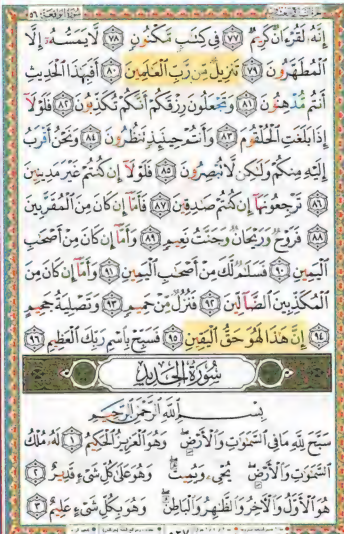 سُورَةُ الْوَاقِعَةِ ٥٦
إِنَّهُ لَقُرْءَانٌ كَرِيمٌ ٧٧ فِي كِتَابٍ مَّكْنُونٍ ٧٨ لَّا يَمَسُّهُ إِلَّا
الْمُطَهَّرُونَ ٧٩ تَنزِيلٌ مِّن رَّبِّ الْعَالَمِينَ ٨٠ أَفَبِهَٰذَا الْحَدِيثِ
أَنتُم مُّدْهِنُونَ ٨١ وَتَجْعَلُونَ رِزْقَكُمْ أَنَّكُمْ تُكَذِّبُونَ ٨٢ فَلَوْلَا
إِذَا بَلَغَتِ الْحُلْقُومَ ٨٣ وَأَنتُمْ حِينَئِذٍ تَنظُرُونَ ٨٤ وَنَحْنُ أَقْرَبُ
إِلَيْهِ مِنكُمْ وَلَٰكِن لَّا تُبْصِرُونَ ٨٥ فَلَوْلَا إِن كُنتُمْ غَيْرَ مَدِينِينَ
٨٦ تَرْجِعُونَهَا إِن كُنتُمْ صَادِقِينَ ٨٧ فَأَمَّا إِن كَانَ مِنَ الْمُقَرَّبِينَ
٨٨ فَرَوْحٌ وَرَيْحَانٌ وَجَنَّتُ نَعِيمٍ ٨٩ وَأَمَّا إِن كَانَ مِنْ أَصْحَابِ
الْيَمِينِ ٩٠ فَسَلَامٌ لَّكَ مِنْ أَصْحَابِ الْيَمِينِ ٩١ وَأَمَّا إِن كَانَ مِنَ
الْمُكَذِّبِينَ الضَّالِّينَ ٩٢ فَنُزُلٌ مِّنْ حَمِيمٍ ٩٣ وَتَصْلِيَةُ جَحِيمٍ
٩٤ إِنَّ هَٰذَا لَهُوَ حَقُّ الْيَقِينِ ٩٥ فَسَبِّحْ بِاسْمِ رَبِّكَ الْعَظِيمِ ٩٦
سُورَةُ الْحَدِيدِ
بِسْمِ اللَّهِ الرَّحْمَٰنِ الرَّحِيمِ
سَبَّحَ لِلَّهِ مَا فِي السَّمَاوَاتِ وَالْأَرْضِ وَهُوَ الْعَزِيزُ الْحَكِيمُ ١ لَهُ مُلْكُ
السَّمَاوَاتِ وَالْأَرْضِ يُحْيِي وَيُمِيتُ وَهُوَ عَلَىٰ كُلِّ شَيْءٍ قَدِيرٌ ٢
هُوَ الْأَوَّلُ وَالْآخِرُ وَالظَّاهِرُ وَالْبَاطِنُ وَهُوَ بِكُلِّ شَيْءٍ عَلِيمٌ ٣
٥٣٧